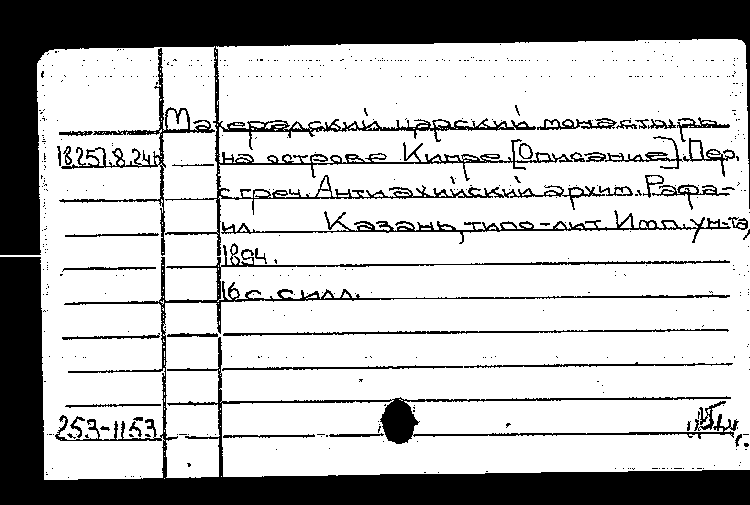 Махерадский царский монастырь
18.257.8.24b на острове Кипре [Описание]. Пер.
с греч. Антиахийский архим. Рафа-
ил. Казань, типо-лит. Имп. ун-та,
1894.
16 с. с илл.
253-1153